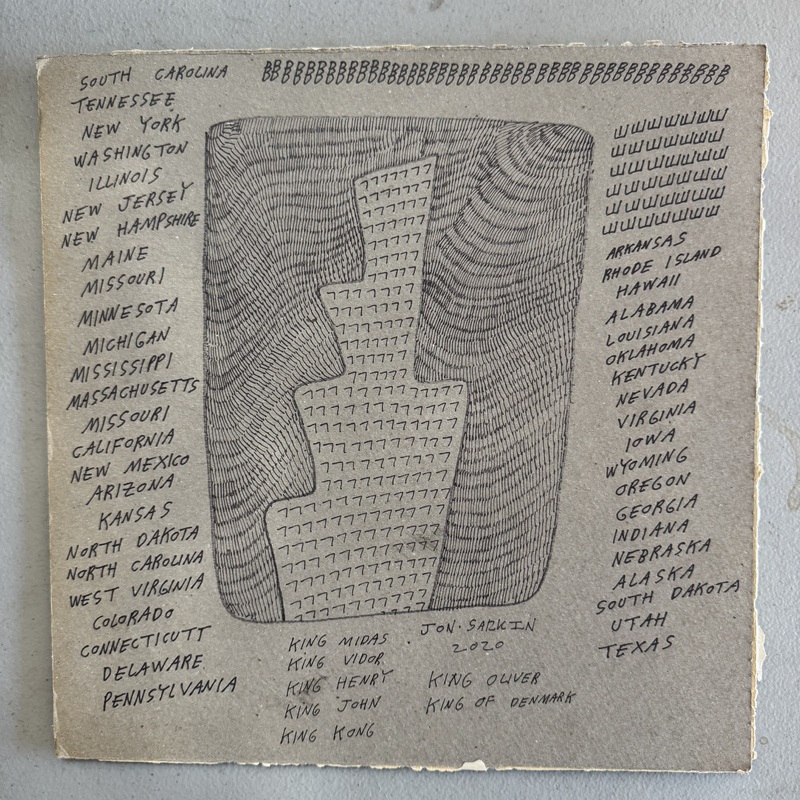 SOUTH CAROLINA
TENNESSEE
NEW YORK
WASHINGTON
ILLINOIS
NEW JERSEY
NEW HAMPSHIRE
MAINE
MISSOURI
MINNESOTA
MICHIGAN
MISSISSIPPI
MASSACHUSETTS
MISSOURI
CALIFORNIA
NEW MEXICO
ARIZONA
KANSAS
NORTH DAKOTA
NORTH CAROLINA
WEST VIRGINIA
COLORADO
CONNECTICUTT
DELAWARE
PENNSYLVANIA
KING MIDAS
KING VIDOR
KING HENRY
KING JOHN
KING KONG
JON·SARKIN
2020
KING OLIVER
KING OF DENMARK
ARKANSAS
RHODE ISLAND
HAWAII
ALABAMA
LOUISIANA
OKLAHOMA
KENTUCKY
NEVADA
VIRGINIA
IOWA
WYOMING
OREGON
GEORGIA
INDIANA
NEBRASKA
ALASKA
SOUTH DAKOTA
UTAH
TEXAS